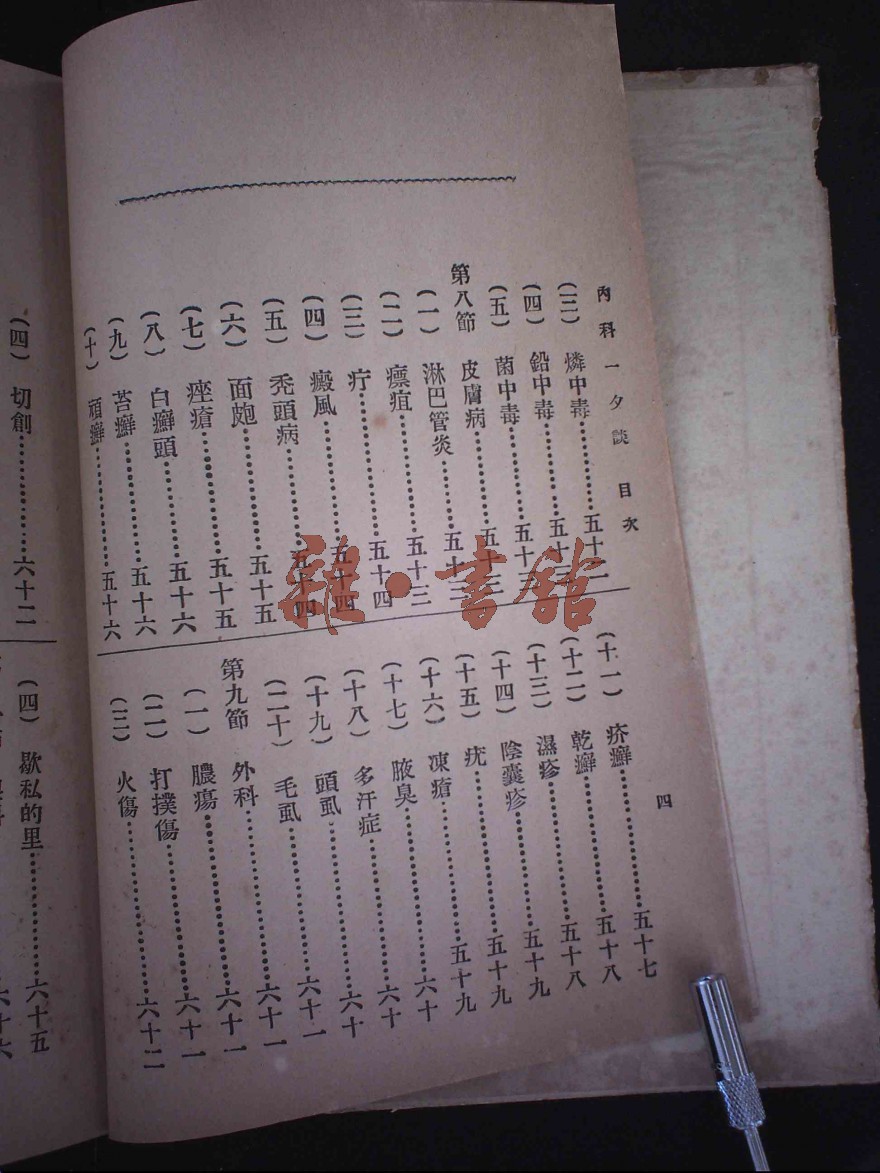 內科一夕談 目次
四
(三) 燐中毒……五十二
(四) 鉛中毒……五十三
(五) 菌中毒……五十三
第八節 皮膚病……五十三
(一) 淋巴管炎……五十三
(二) 瘭疽……五十三
(三) 疔……五十四
(四) 癜風……五十四
(五) 禿頭病……五十四
(六) 面皰……五十五
(七) 痤瘡……五十五
(八) 白癬頭……五十六
(九) 苔癬……五十六
(十) 頑癬……五十六
(十一) 疥癬……五十七
(十二) 乾癬……五十八
(十三) 濕疹……五十八
(十四) 陰囊疹……五十九
(十五) 疣……五十九
(十六) 凍瘡……五十九
(十七) 腋臭……六十
(十八) 多汗症……六十
(十九) 頭虱……六十
(二十) 毛虱……六十一
第九節 外科……六十一
(一) 膿瘍……六十一
(二) 打撲傷……六十一
(三) 火傷……六十二
(四) 切創……六十二
(四) 歇私的里……六十五
雜·書館